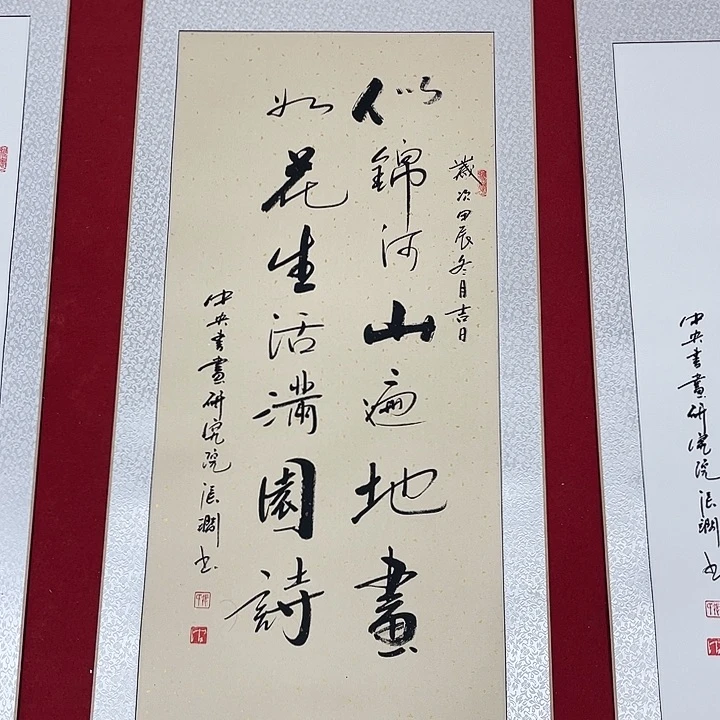 歲次甲辰冬月吉日
似錦河山遍地畫
如花生活滿園詩
中央書畫研究院張書
中央書畫研究院張書